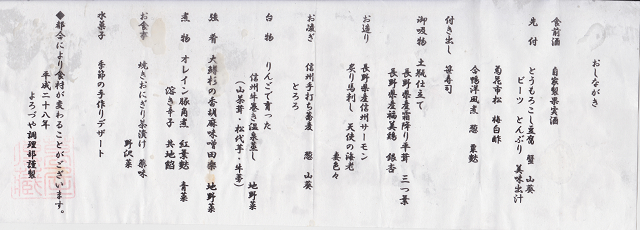 おしながき
食前酒 自家製果実酒
先付 とうもろこし豆腐 蟹 山葵
ビーツ とんぶり 美味出汁
菊花市松 梅白酢
合鴨洋風煮 葱 粟麩
付き出し 笹寿司
御吸物 土瓶仕立て
長野県産霜降り平茸 三つ葉
長野県産福美鶏 銀杏
お造り 長野県産信州サーモン
炙り馬刺し 天使の海老
妻色々
お凌ぎ 信州手打ち蕎麦 葱 山葵
とろろ
台物 りんごで育った
信州牛巻き温泉蒸し 地野菜
(山茶茸・松代茸・牛蒡)
強肴 大鱒杉の香胡麻味噌田楽 地野菜
煮物 オレイン豚角煮 紅葉麩 青菜
溶き辛子 共地餡
お食事 焼きおにぎり茶漬け 薬味
野沢菜
水菓子 季節の手作りデザート
◆都合により食材が変わることがございます。
平成二十八年
よろづや調理部謹製